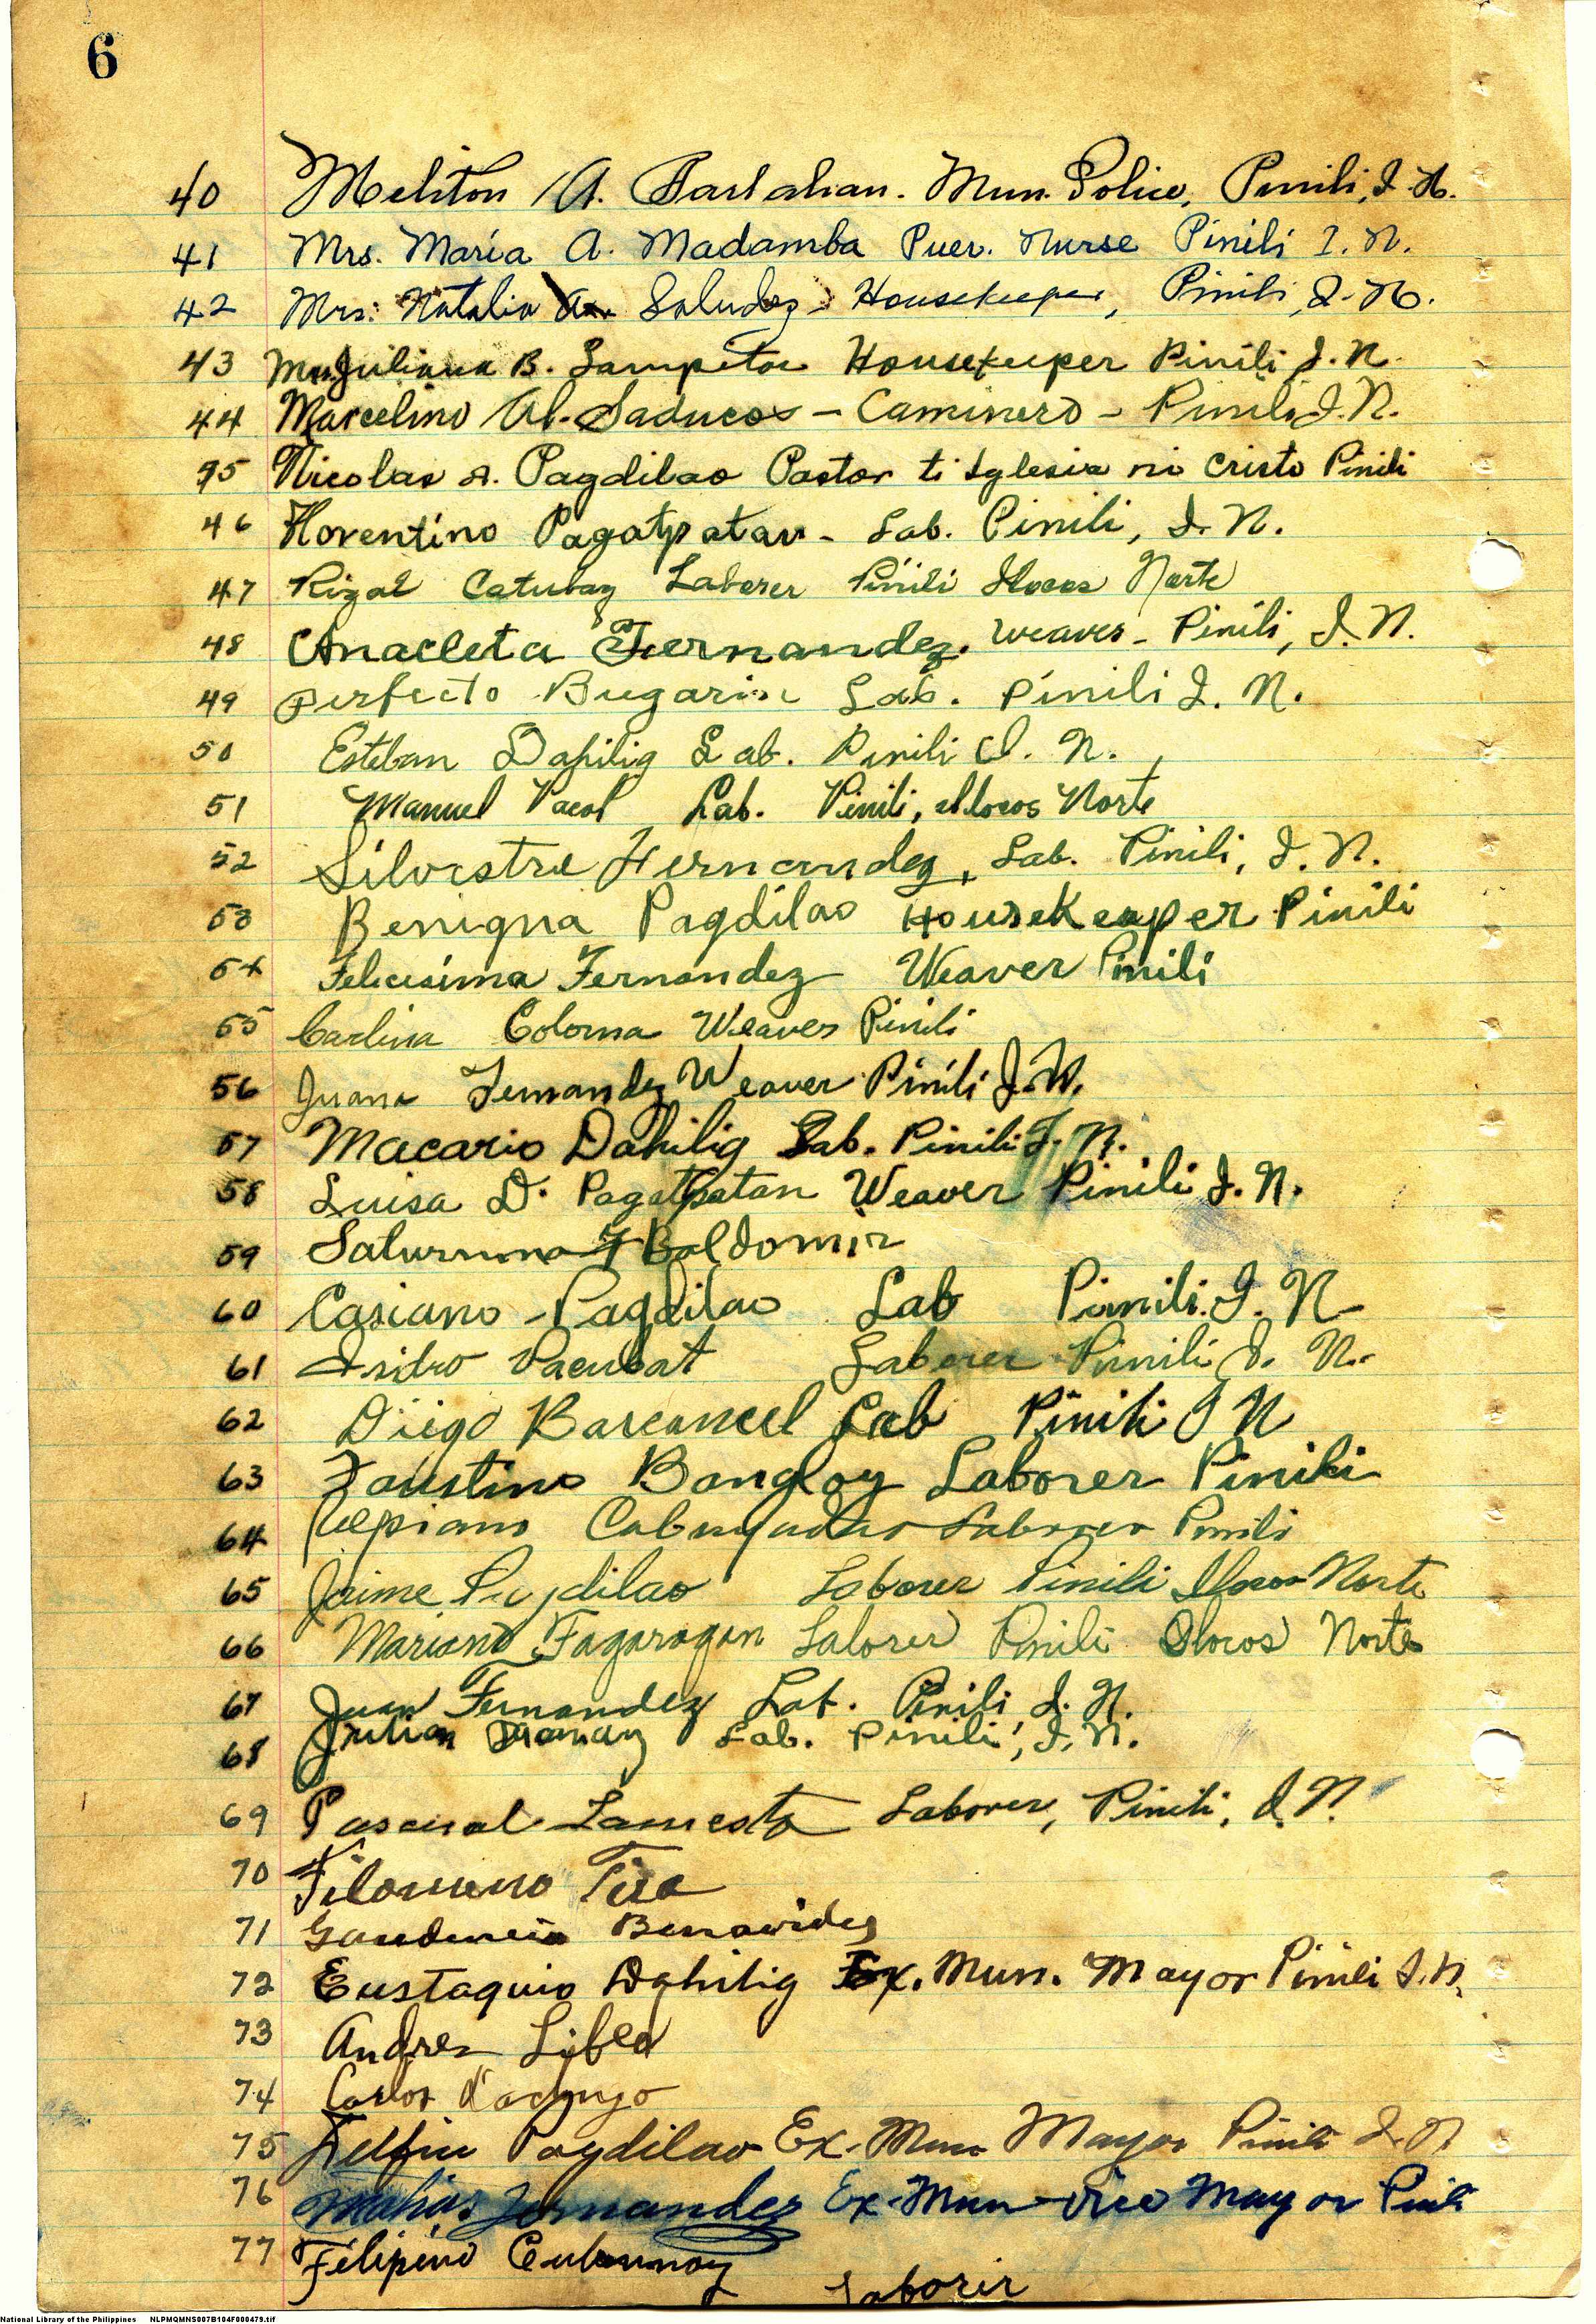 6
40 Meliton A. Mun. Police, Pinili, I. N.
41 Mrs. Maria A. Madamba Puer. Nurse Pinili I. N.
42 Mrs. Natalia Saludez Housekeeper, Pinili, I. N.
43 Mrs. Juliana B. Housekeeper Pinili I. N.
44 Marcelino Al. Saducos - Caminero - Pinili I. N.
45 Nicolas A. Pagdilao Pastor ti Iglesia ni Cristo Pinili
46 Florentino Pagatpatan - Lab. Pinili, I. N.
47 Rizal Catubay Laborer Pinili Ilocos Norte
48 Anacleta Fernandez. Weaver - Pinili, I. N.
49 Perfecto Bugarin Lab. Pinili I. N.
50 Esteban Dahilig Lab. Pinili I. N.
51 Manuel Lab. Pinili, Ilocos Norte
52 Silvestre Fernandez, Lab. Pinili, I. N.
53 Benigna Pagdilao Housekeaper Pinili
54 Felicisima Fernandez Weaver Pinili
55 Carlina Coloma Weaver Pinili
56 Juana Fernandez Weaver Pinili I. N.
57 Macario Dahilig Lab. Pinili I. N.
58 Luisa D. Pagatpatan Weaver Pinili I. N.
59 Saturnina F Baldomir
60 Casiano Pagdilao Lab Pinili. I. N
61 Isidro Pacubat Laborer Pinili I. N.
62 Diego Barcancel Lab Pinili I N
63 Faustino Bangloy Laborer Pinili
64 Ulpiano Laborer Pinili
65 Jaime Pagdilao Laborer Pinili Ilocos Norte
66 Mariano Fagaragan Laborer Pinili Ilocos Norte
67 Juan Fernandez Lab. Pinili I. N.
68 Julian Lab. Pinili, I. N.
69 Pascual Laborer, Pinili, I. N.
70 Filomeno
71 Gaudencio Benavides
72 Eustaquio Dahilig Ex. Mun. Mayor Pinili I. N.
73 Andres
74 Carlos
75 Delfin Pagdilao Ex. Mun Mayor Pinili I. N
76 Matias Fernandez Ex-Mun-Vice Mayor Pinili
77 Filipino
Laborir
National Library of the Philippines NLPMQMNS007B104F000479.tif